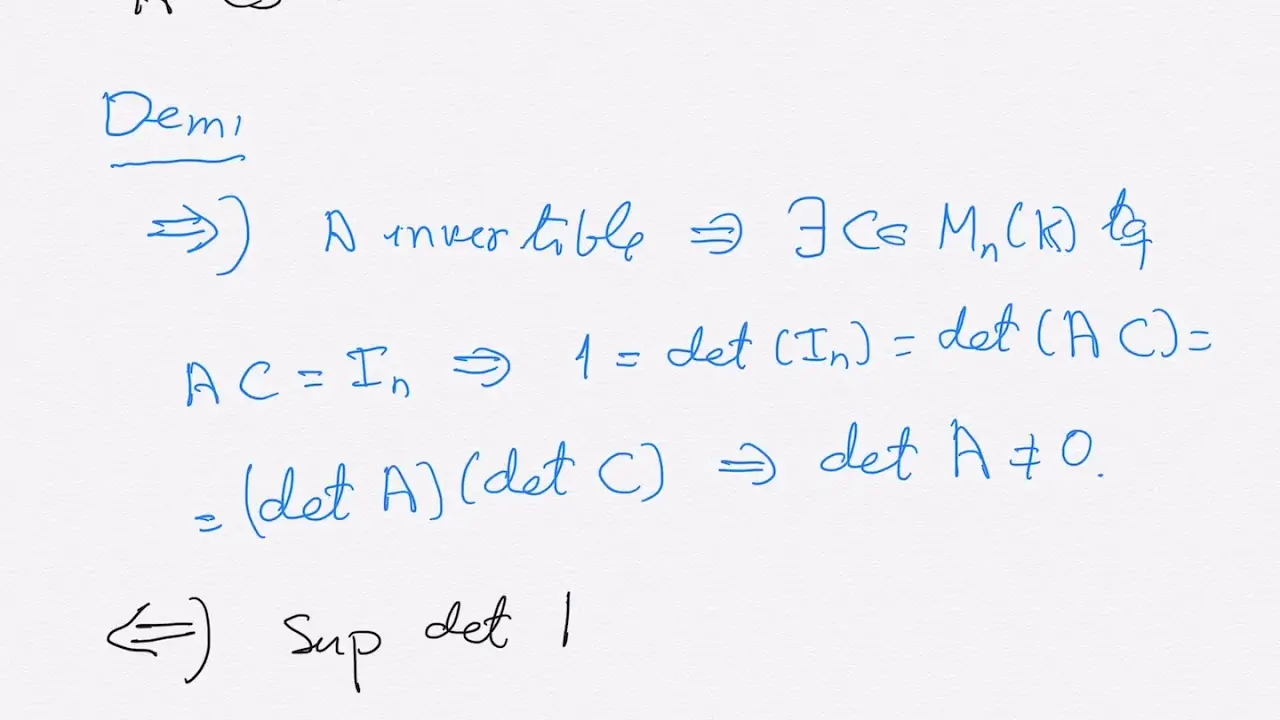 Dem,
⇒) A invertible ⇒ ∃ C ∈ Mₙ(K) tq
A C = Iₙ ⇒ 1 = det (Iₙ) = det (A C) =
= (det A) (det C) ⇒ det A ≠ 0.
⇐) Sup det